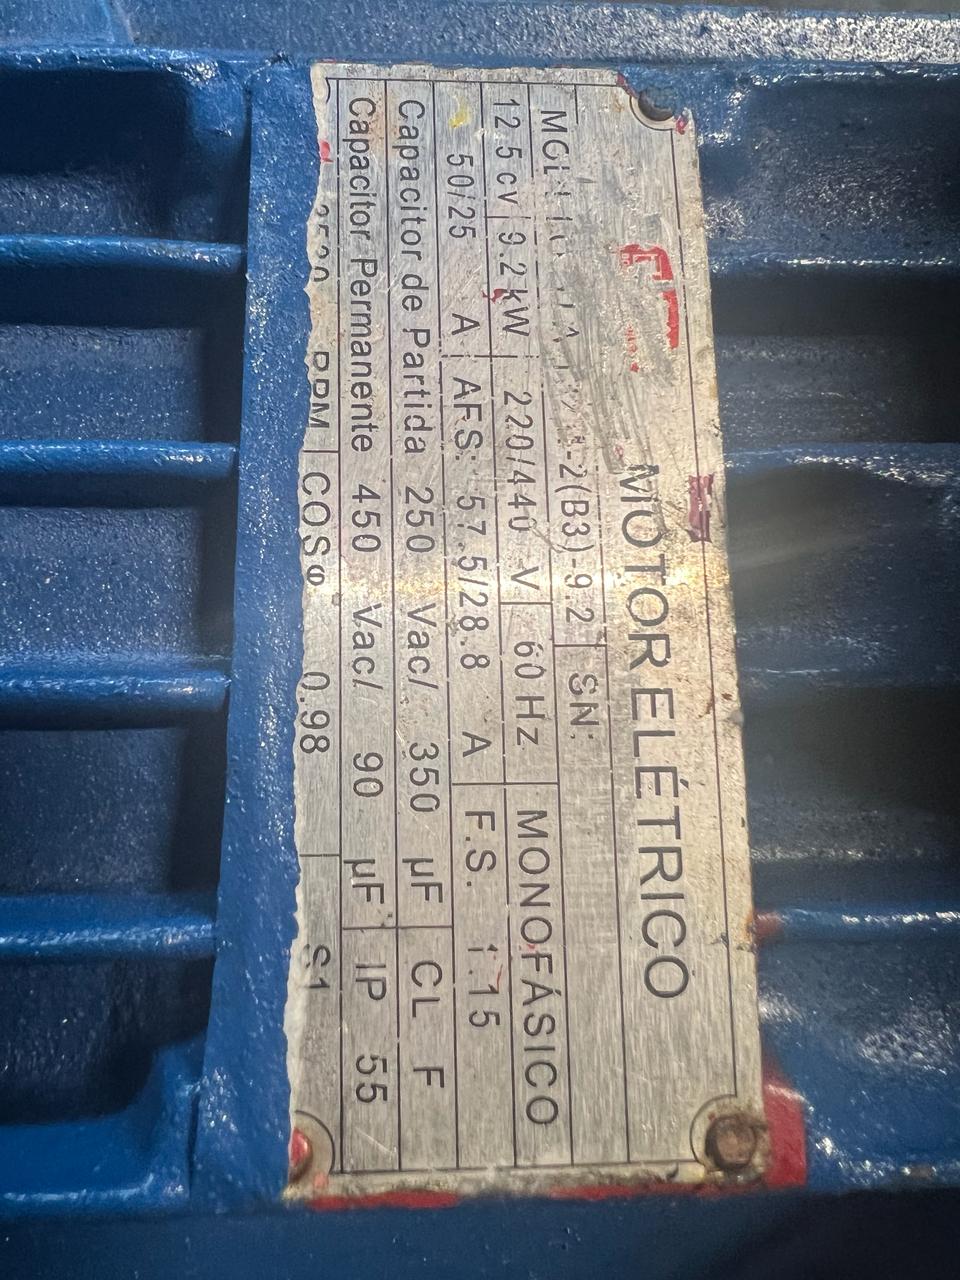 MOTOR ELÉTRICO
-2(B3)-9.2 SN:
12.5cv 9.2kW 220/440 V 60Hz MONOFÁSICO
50/25 A AFS: 57.5/28.8 A F.S. 1.15
Capacitor de Partida 250 Vac/ 350 µF CL F
Capacitor Permanente 450 Vac/ 90 µF IP 55
RPM COSφ 0.98 S1